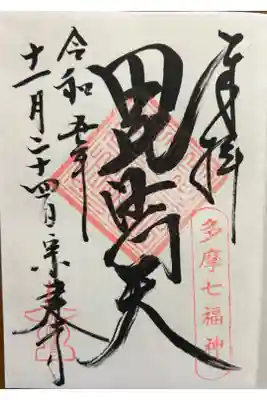 奉拝
毘沙門天
多摩七福神
令和五年
十一月二十四日